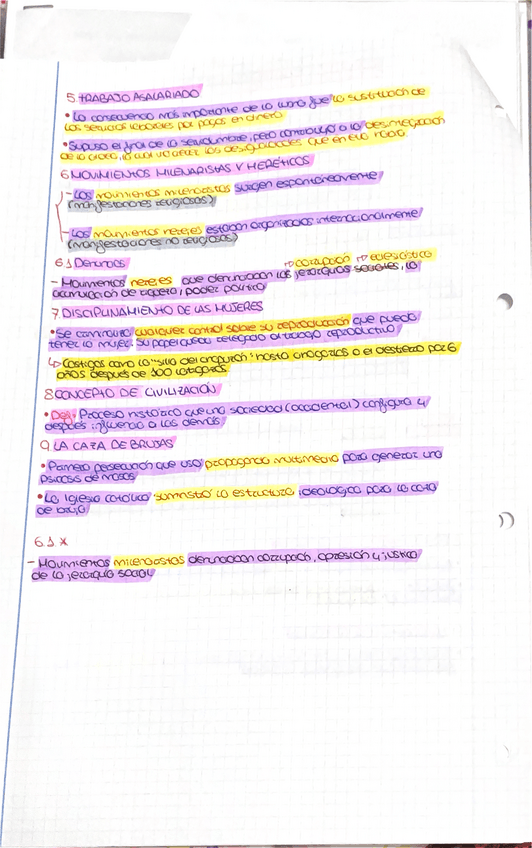 5 TRABAJO ASALARIADO
• La consecuencia más importante de la lucha fue la sustitución de
los servicios laborales por pagos en dinero
• Supuso el final de la servidumbre, pero contribuyó a la desintegración
de la aldea, lo cual las desigualdades que en ella había.
6 MOVIMIENTOS MILENARISTAS Y HERÉTICOS
- Los movimientos milenaristas surgen espontáneamente
(manifestaciones religiosas)
- Los movimientos herejes estaban organizados internacionalmente
(manifestaciones no religiosas)
6.1 Denuncias
→ corrupción → eclesiástica
- Movimientos herejes que denunciaban las jerarquías sociales, la
acumulación de riqueza y poder político
7 DISCIPLINAMIENTO DE LAS MUJERES
• Se criminaliza cualquier control sobre su reproducción que pueda
tener la mujer. Su papel queda relegado al trabajo reproductivo
↳ Castigos como la "silla del chapuzón" hasta ahogarlas o el destierro por 6
años después de 100 latigazos
8 CONCEPTO DE CIVILIZACIÓN
• Def: Proceso histórico que una sociedad (occidental) configura y
después influencia a las demás
9 LA CAZA DE BRUJAS
• Primera persecución que usó propaganda multimedia para generar una
psicosis de masas
• La Iglesia católica suministró la estructura ideológica para la caza
de brujas
6.1 *
- Movimientos milenaristas denunciaban corrupción, opresión y justicia
de la jerarquía social